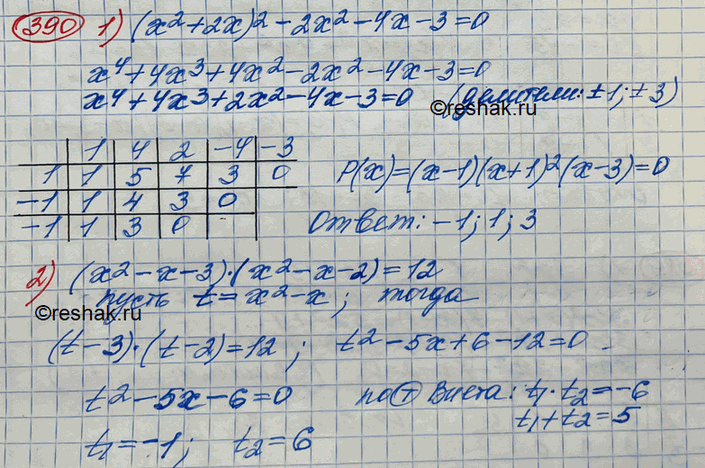 390 1) (x² + 2x)² - 2x² - 4x - 3 = 0
x⁴ + 4x³ + 4x² - 2x² - 4x - 3 = 0
x⁴ + 4x³ + 2x² - 4x - 3 = 0 (делители: ±1; ±3)
©reshak.ru
1 4 2 -4 -3
1 1 5 7 3 0
-1 1 4 3 0
-1 1 3 0
P(x) = (x-1)(x+1)²(x-3) = 0
Ответ: -1; 1; 3
2) (x² - x - 3)·(x² - x - 2) = 12
пусть t = x² - x; тогда
©reshak.ru
(t - 3)·(t - 2) = 12; t² - 5x + 6 - 12 = 0
t² - 5x - 6 = 0 по Т Виета: t₁·t₂ = -6
t₁ + t₂ = 5
t₁ = -1; t₂ = 6